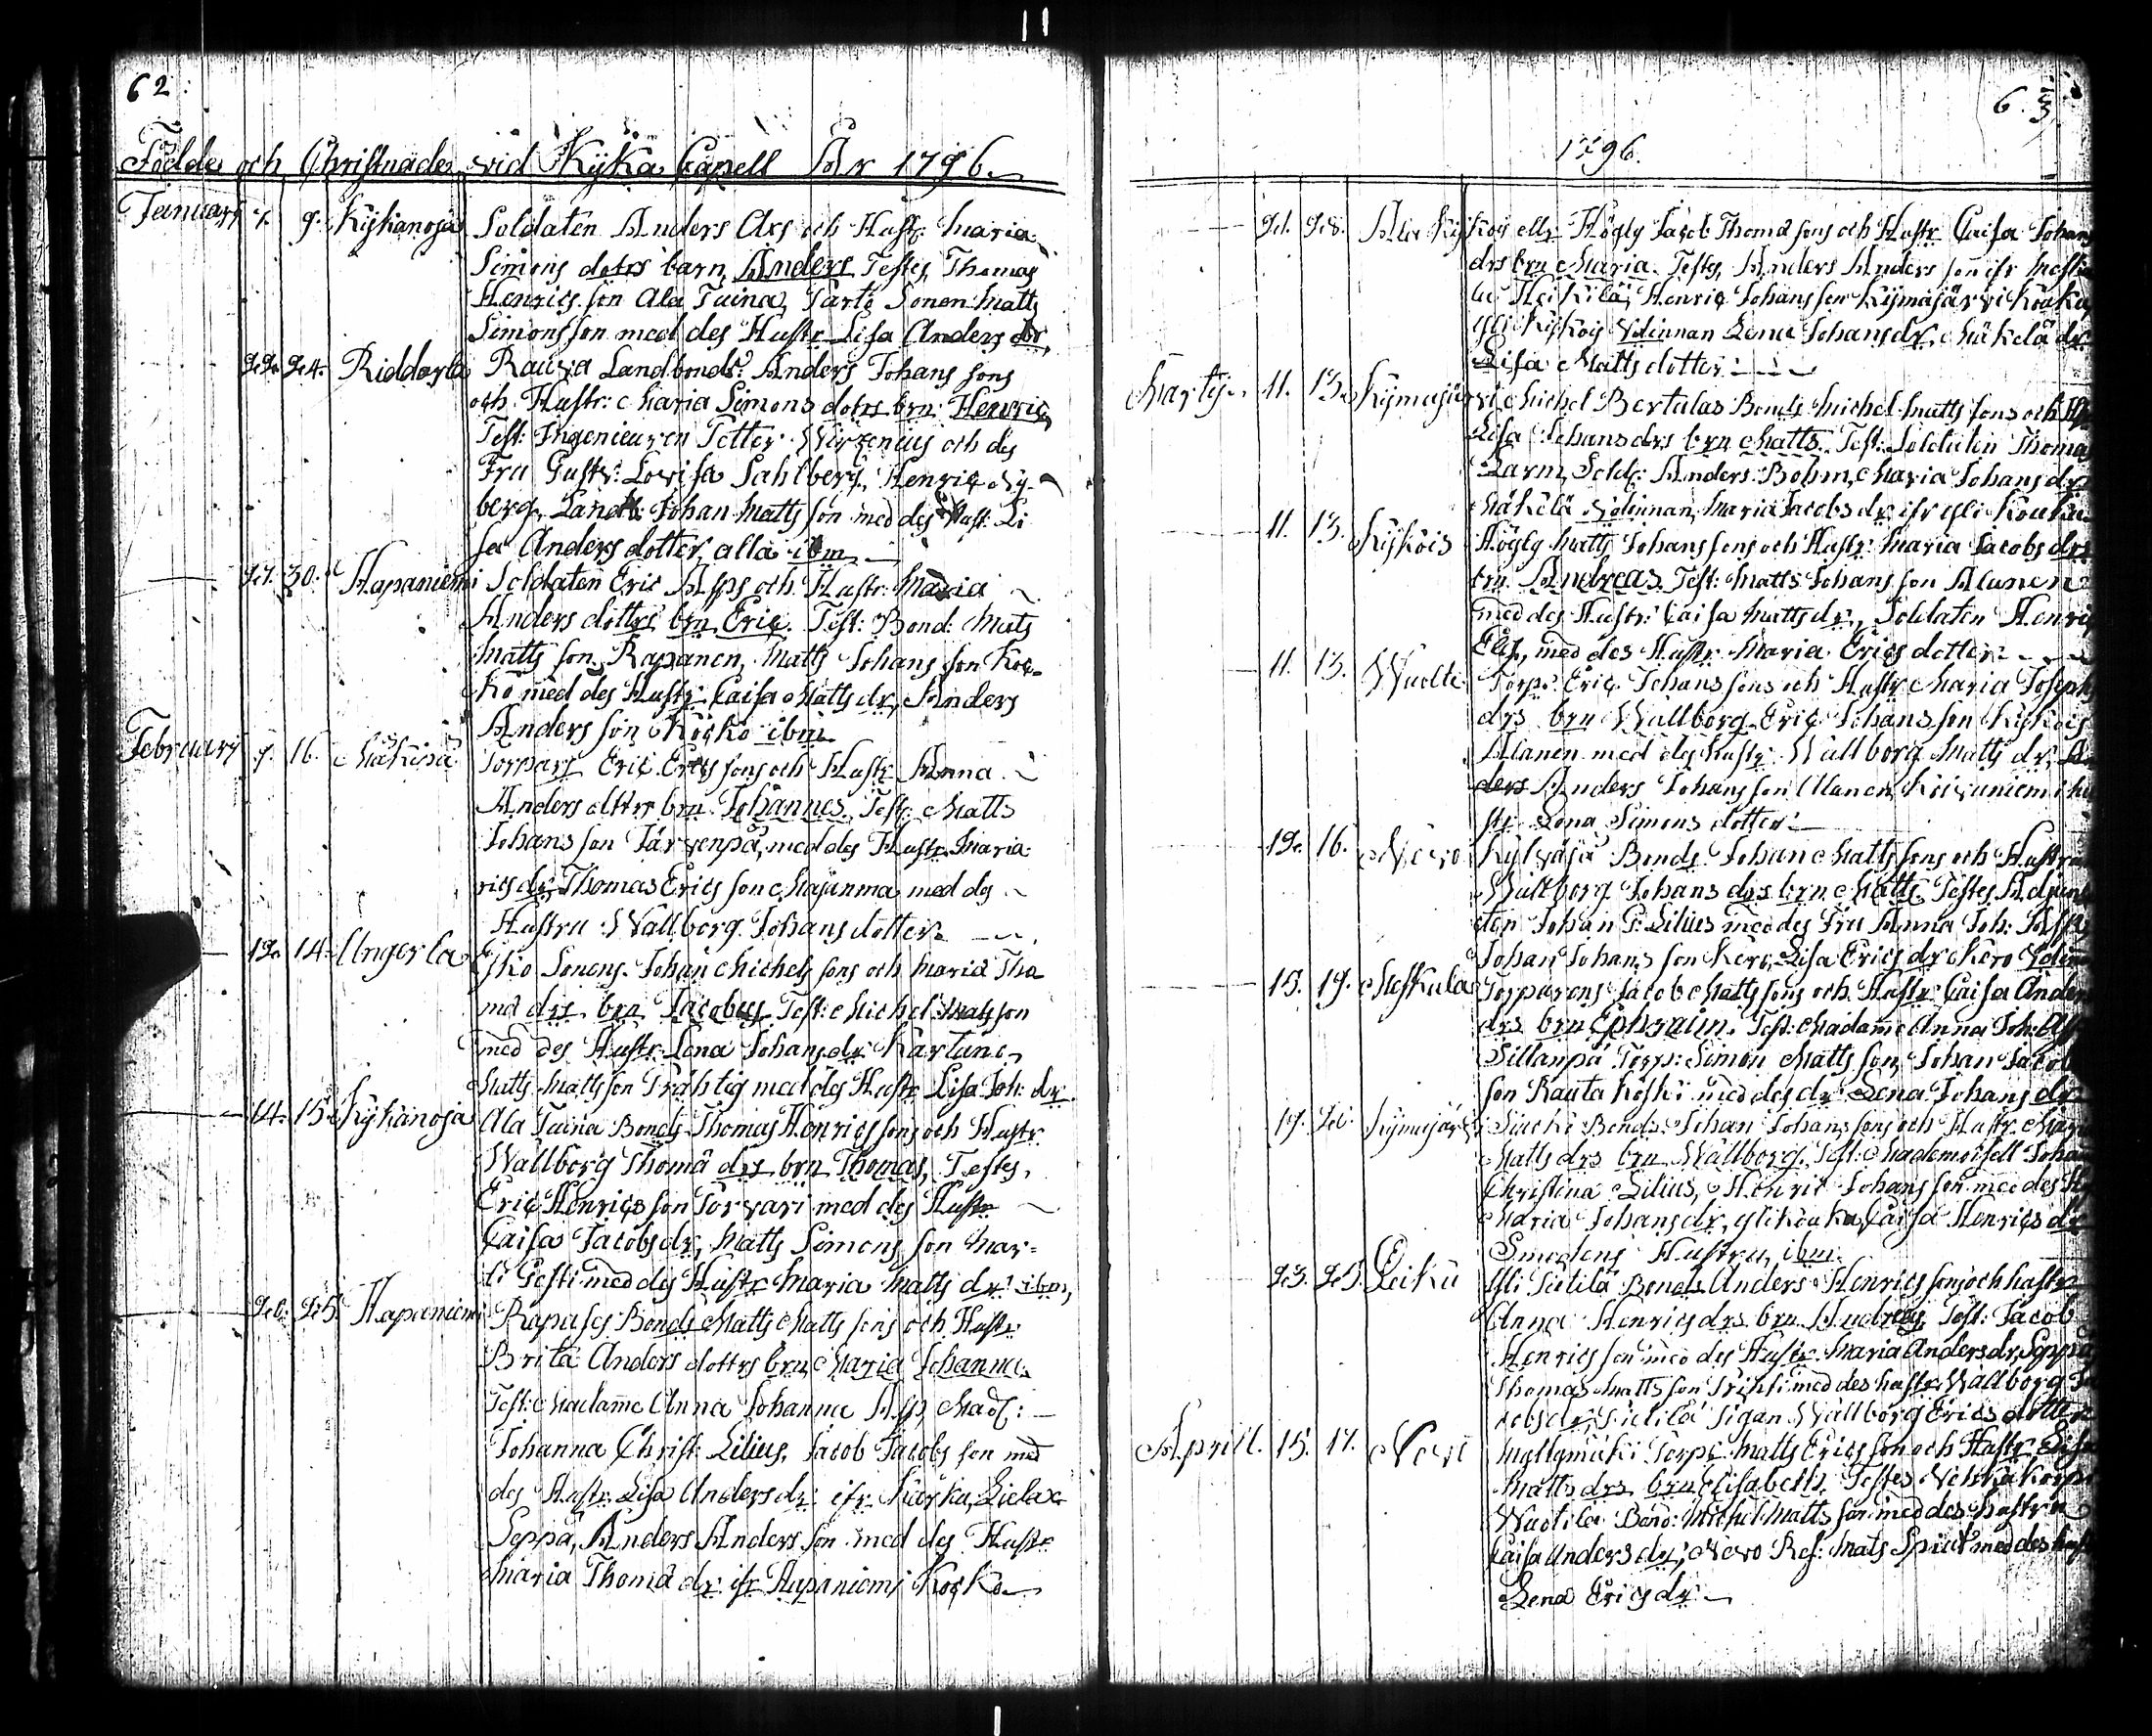 62.
Födde och Christnade vid Kyka Capell År 1796.
January 7. 9. Kykanoja Soldaten Anders Ars och Hust: Maria
Simons dotrs barn Anders Testes Thomas
Henrics son Ala Tuina, Sonen Matts
Simons son med des Hustr Lisa Anders dr,
22. 24. Riddarla Rausa Landbonds: Anders Johans sons
och Hustr: Maria Simons dotrs brn: Henric,
Test: Ingenieuren Petter Wirzenius och des
Fru Gustv: Lovisa Sahlberg, Henric Ny-
berg, Landb: Johan Matts son med des Hust: Li
sa Anders dotter, alla ibm
27. 30. Hapaniemi Soldaten Eric Asps och Hustr: Maria
Anders dottrs brn Eric. Test: Bond: Mats
Matts son Rapanen, Matts Johans son Kos-
ko med des Hustr: Caisa Matts dr, Anders
Anders son Kosko ibm
February 7. 16. Mäkipä Torpars Eric Erics sons och Hustr Anna
Anders dttrs brn Johannes. Test: Matts
Johans son Järvenpä, med des Hustr Maria
rics dr, Thomas Erics son Majanma med des
Hustru Wallborg Johans dotter.
12. 14. Ungerla Esko Sonens Johan Michels sons och Maria Tho
mæ drs brn Jacobus Test: Michel Mats son
med des Hustr Lena Johans dr Kartano,
Matts Matts son Prähtig med des Hustr Lisa Joh: dr
14. 15. Kykänoja Ala Tuina Bonds Thomas Henrics sons och Hustr
Wallborg Thomæ drs brn Thomas, Testes,
Eric Henrics son Torvari med des Hustr
Caisa Jacobs dr, Matts Simons son Mar-
ti Gesti med des Hustr Maria Matts dr ibm,
20. 25. Hapaniemi Rapases Bonds Matts Matts sons och Hustr
Brita Anders dottrs brn Maria Johanna
Test: Madame Anna Johanna Asp Mad:
Johanna Christ: Lilius, Jacob Jacobs son med
des Hustr Lisa Anders dr ifr. Kärku, Lielax
Seppä, Anders Anders son med des Hustr
Maria Thomæ dr ifr Hapaniemi Kosko
63
1796.
21. 28. Ala Kykois ells Högly Jacob Thomæ sons och Hustr Caisa Johans
drs brn Maria. Testes, Anders Anders son ifr
Heikilä, Henric Johans son Kymäjärvi Kouku,
Kykois Lena Johans dr, Mäkelä dr
Lisa Matts dotter
Martij 11. 13. Kymäjärvi Michel Bertulas Bonds Michel Matts sons och
Lisa Johans drs brn Matts. Test: Soldaten Thomas
Larm, Sold: Anders Bohm, Maria Johans dr
Mäkelä Maria Jacobs dr ifr Kouku
11. 13. Kykois Högly Matts Johans sons och Hustr: Maria Jacobs drs
brn Andreas. Test: Matts Johans son Alanen
med des Hustr: Caisa Matts dr, Soldaten Henric
Elg, med des Hustr Maria Erics dotter
11. 13. Wuolte Torp: Eric Johans sons och Hustr Maria Joseph
drs brn Wallborg Eric Johans son Kykois
Alanen med des hustr Wallborg Matts dr,
Anders Johans son Alanen, Koivuniemi
str Lena Simons dotter
12. 16. Nero Kylväjä Bonds Johan Matts sons och Hustru
Wallborg Johans drs brn Matts Testes
ten Johan G: Lilius med des Fru Anna Joh: Asp
Johan Johans son Kero, Lisa Erics dr Kero
15. 19. Meskula Torparens Jacob Matts sons och Hustr Caisa Anders
drs brn Ephraim. Test: Madame Anna Joh: Asp
Sillanpä Torp: Simon Matts son, Johan Jacob
son Rautakoski med des dr Lena Johans dr
19. 20. Kymäjärvi Bonds Johan Johans sons och Hustr Maria
Matts drs brn Wallborg, Test: Mademoisell Johan
Christina Lilius, Henric Johans son med des
Maria Johans dr, Caisa Henrics dr
Smedens Hustru, ibm.
23. 25. Leiku Yli Sietilä Bonds Anders Henrics sons och hustr
Anna Henrics drs brn Andreas Test: Jacob
Henrics son med des Hustr Maria Anders dr, Seppä
Thomas Matts son med des hustr Wallborg
cobs dr, Sietilä pigan Wallborg Erics dotter
Aprill. 15. 17. Nero Myllymäki Torps Matts Erics son och Hustr Lisa
Matts drs brn Elisabeth, Testes
Wuotila Bond: Michel Matts son med des hustru
Caisa Anders dr, Nero Mats med des hust
Lena Erics dr